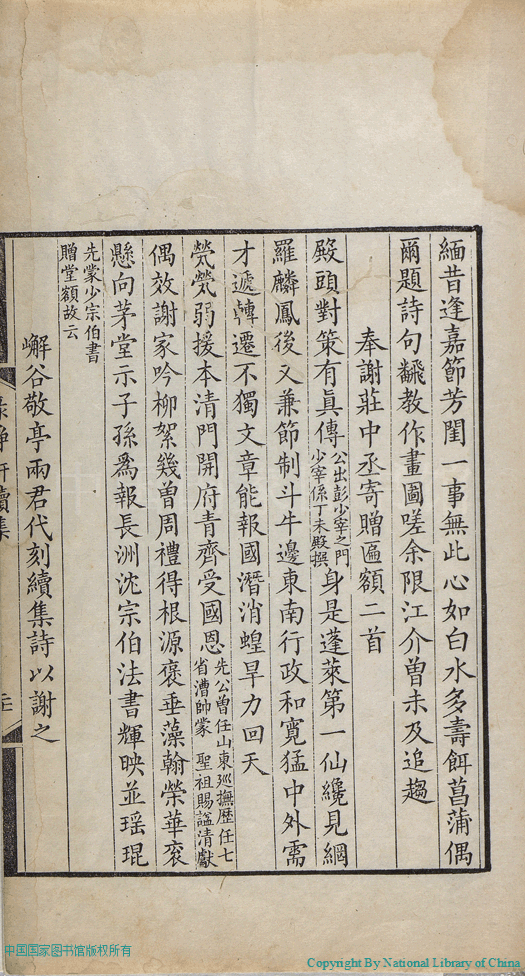 緬昔逢嘉節芳閨一事無此心如白水多壽餌菖蒲偶
爾題詩句飜教作畫圖嗟余限江介曾未及追趨
奉謝莊中丞寄贈匾額二首
殿頭對策有眞傳公出彭少宰之門少宰係丁未殿撰身是蓬萊第一仙纔見網
羅麟鳳後又兼節制斗牛邊東南行政和寛猛中外需
才遞轉遷不獨文章能報國潛消蝗旱力回天
煢煢弱援本清門開府青齊受國恩先公曾任山東廵撫歴任七省漕帥蒙 聖祖賜諡清獻
偶效謝家吟柳絮幾曾周禮得根源褒垂藻翰榮華衮
懸向茅堂示子孫爲報長洲沈宗伯法書輝映並瑶琨
先蒙少宗伯書
贈堂額故云
嶰谷敬亭兩君代刻續集詩以謝之
續集
中国国家图书馆版权所有
Copyright By National Library of China